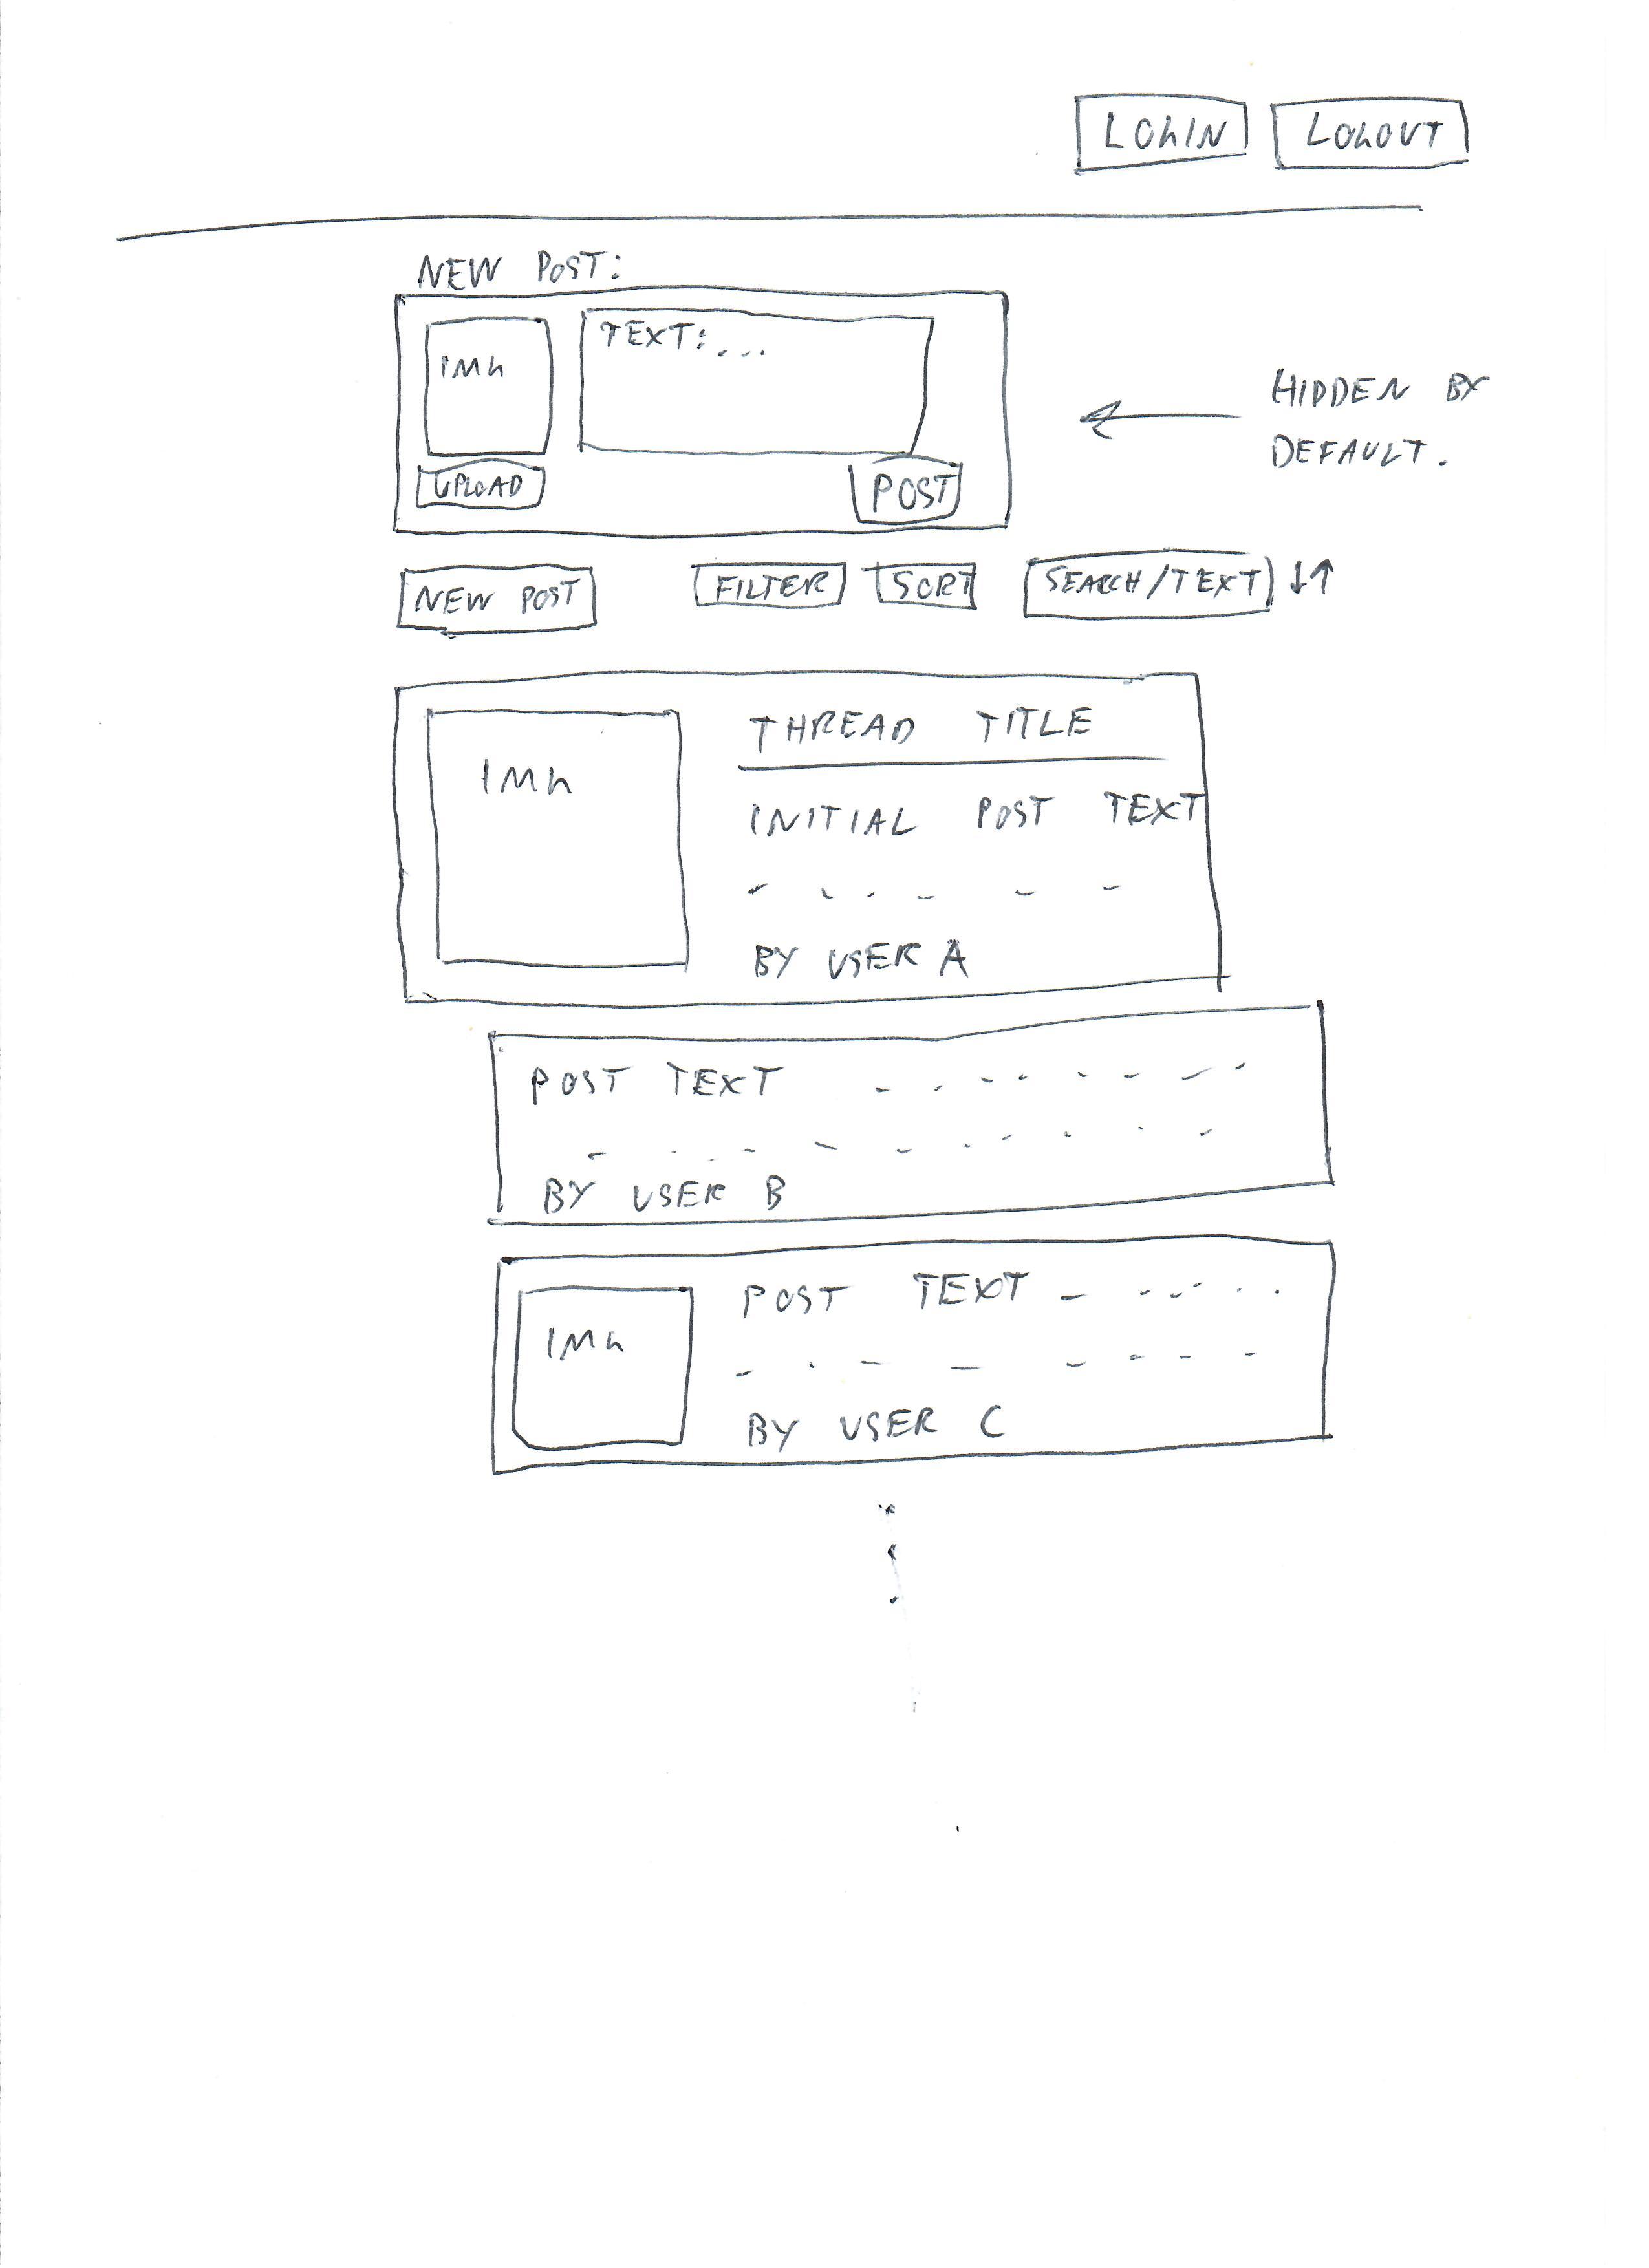 LOGIN LOGOUT
NEW POST:
IMG
TEXT:...
HIDDEN BY
DEFAULT.
UPLOAD
POST
NEW POST FILTER SORT SEARCH/TEXT ↓↑
IMG
THREAD TITLE
INITIAL POST TEXT
BY USER A
POST TEXT
BY USER B
IMG
POST TEXT
BY USER C